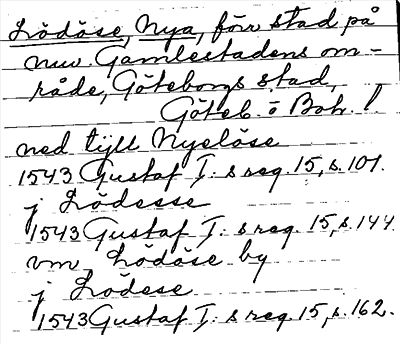 Lödöse, Nya, förr stad på
nuv. Gamlestadens om-
råde, Göteborgs stad,
Göteb. o Boh. l.
ned tijll Nyelöse
1543 Gustaf I:s reg. 15, s. 101.
j Lödesse
1543 Gustaf I:s reg. 15, s. 144.
vm Lödöse by
j Lödese
1543 Gustaf I:s reg. 15, s. 162.